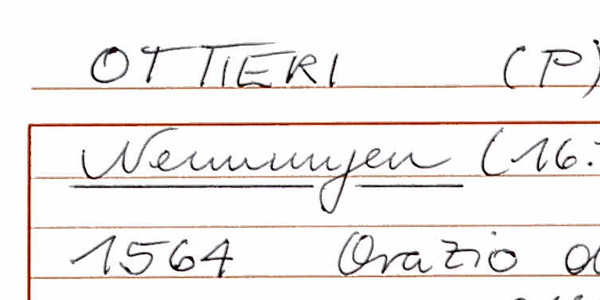 OTTIERI (P)
Nennungen (16.
1564 Orazio d